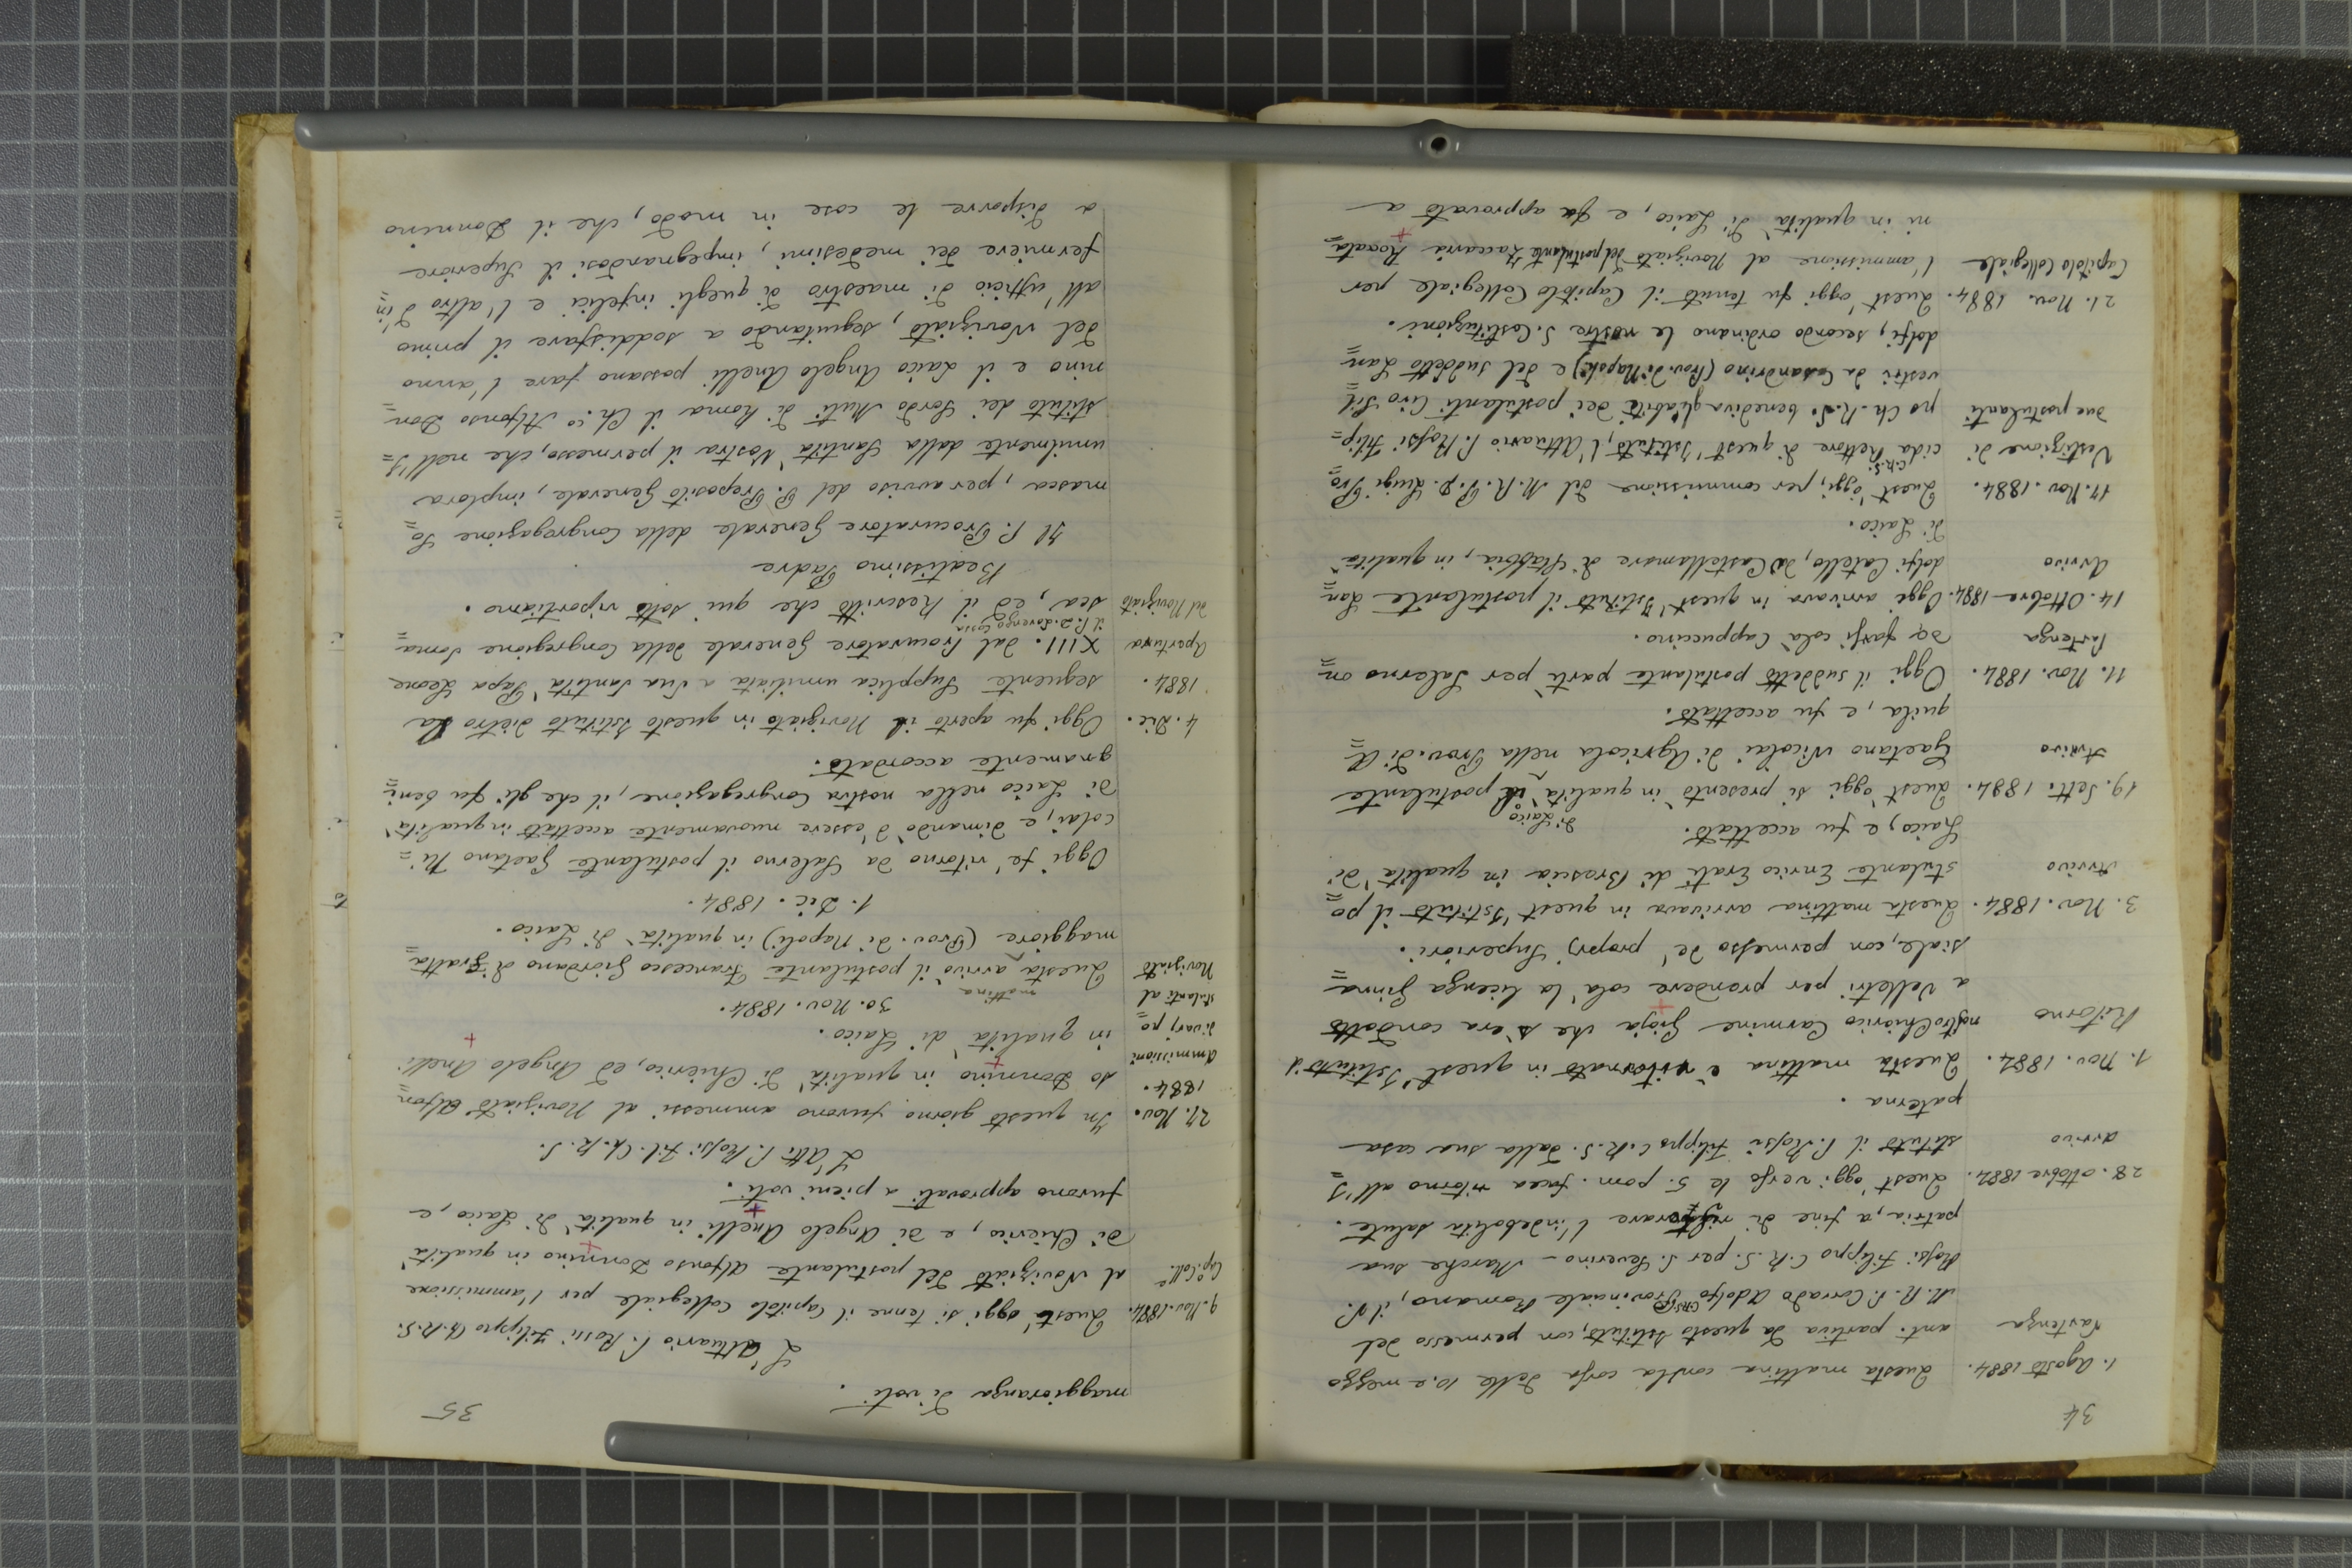 34
1. Agosto 1884. Questa mattina con la corsa delle 10. e mezzo
Partenza ant. partiva da questo Istituto, con permesso del
M. R. P. Corrado Adolfo CRS Provinciale Romano, il P.
Rossi Filippo C. R. S. per S. Severino - Marche sua
patria, a fine di ristorare l'indebolita salute.
28. ottobre 1884. Quest'oggi verso le 5. pom. facea ritorno all'I=
arrivo stituto il P. Rossi Filippo C. R. S. dalla sua casa
paterna.
1. Nov. 1884. Questa mattina è ritornato in quest'Istituto il
Ritorno nostro Chierico Carmine Gioja che s'era condotto
a Velletri per prendere colà la licenza ginna=
siale, con permesso de' proprj Superiori.
3. Nov. 1884. Questa mattina arrivava in quest'Istituto il po=
Arrivo stulante Enrico Erati di Brescia in qualità di
Laico, e fu accettato.
19. Sett. 1884. Quest'oggi si presentò in qualità di Laico il postulante
Arrivo Gaetano Nicolai di Agricola nella Prov. di A=
quila, e fu accettato.
11. Nov. 1884. Oggi il suddetto postulante partì per Salerno on
Partenza de farsi colà Cappuccino.
14. Ottobre 1884. Oggi arrivava in quest'Istituto il postulante Lan=
Arrivo dolfi Catello, da Castellamare di Stabbia, in qualità
di Laico.
17. Nov. 1884. Quest'oggi, per commissione del M. R. P. D. Luigi Pro=
Vestizione di cida C.R.S. Rettore di quest'Istituto, l'Attuario P. Rossi Filip=
due postulanti po Ch. R. S. benediva gli abiti dei postulanti Ciro Sil
vestri da Casandrino (Prov. di Napoli) e del suddetto Lan=
dolfi, secondo ordinano le nostre S. Costituzioni.
21. Nov. 1884. Quest'oggi fu tenuto il Capitolo Collegiale per
Capitolo Collegiale l'ammissione al Noviziato del postulante Zaccaria Rocata=
ni in qualità di Laico, e fu approvato a
35
maggioranza di voti.
L'Attuario P. Rossi Filippo Ch. R. S.
9. Nov. 1884. Quest'oggi si tenne il Capitolo Collegiale per l'ammissione
Cap.o Coll.e al Noviziato del postulante Alfonso Donnino in qualità
di Chierico, e di Angelo Anelli in qualità di Laico, e
furono approvati a pieni voti.
L'Att. P. Rossi Fil. Ch. R. S.
27. Nov. In questo giorno furono ammessi al Noviziato Alfon=
1884. so Donnino in qualità di Chierico, ed Angelo Anelli
Ammissioni in qualità di Laico.
di varj po= 30. Nov. 1884.
stulanti al Questa mattina arrivò il postulante Francesco Giordano di Fratta=
Noviziato maggiore (Prov. di Napoli) in qualità di Laico.
1. Dic. 1884.
Oggi fe' ritorno da Salerno il postulante Gaetano Ni=
colai, e dimandò d'essere nuovamente accettato in qualità
di Laico nella nostra Congregazione, il che gli fu beni=
gnamente accordato.
4. Dic. Oggi fu aperto il Noviziato in questo Istituto dietro la
1884. seguente Supplica umiliata a Sua Santità Papa Leone
Apertura XIII. dal Procuratore Generale della Congregazione Soma=
il P. D. Lorenzo Cossa
del Noviziato sca, ed il Rescritto che qui sotto riportiamo.
Beatissimo Padre
Il P. Procuratore Generale della Congregazione So=
masca, per avviso del P. Preposito Generale, implora
umilmente dalla Santità Vostra il permesso, che nell'I=
stituto dei Sordo Muti di Roma il Ch.co Alfonso Don=
nino e il Laico Angelo Anelli possano fare l'anno
del Noviziato, seguitando a soddisfare il primo
all'ufficio di maestro di quegli infelici e l'altro d'in=
fermiere dei medesimi, impegnandosi il Superiore
a disporre le cose in modo, che il Donnino